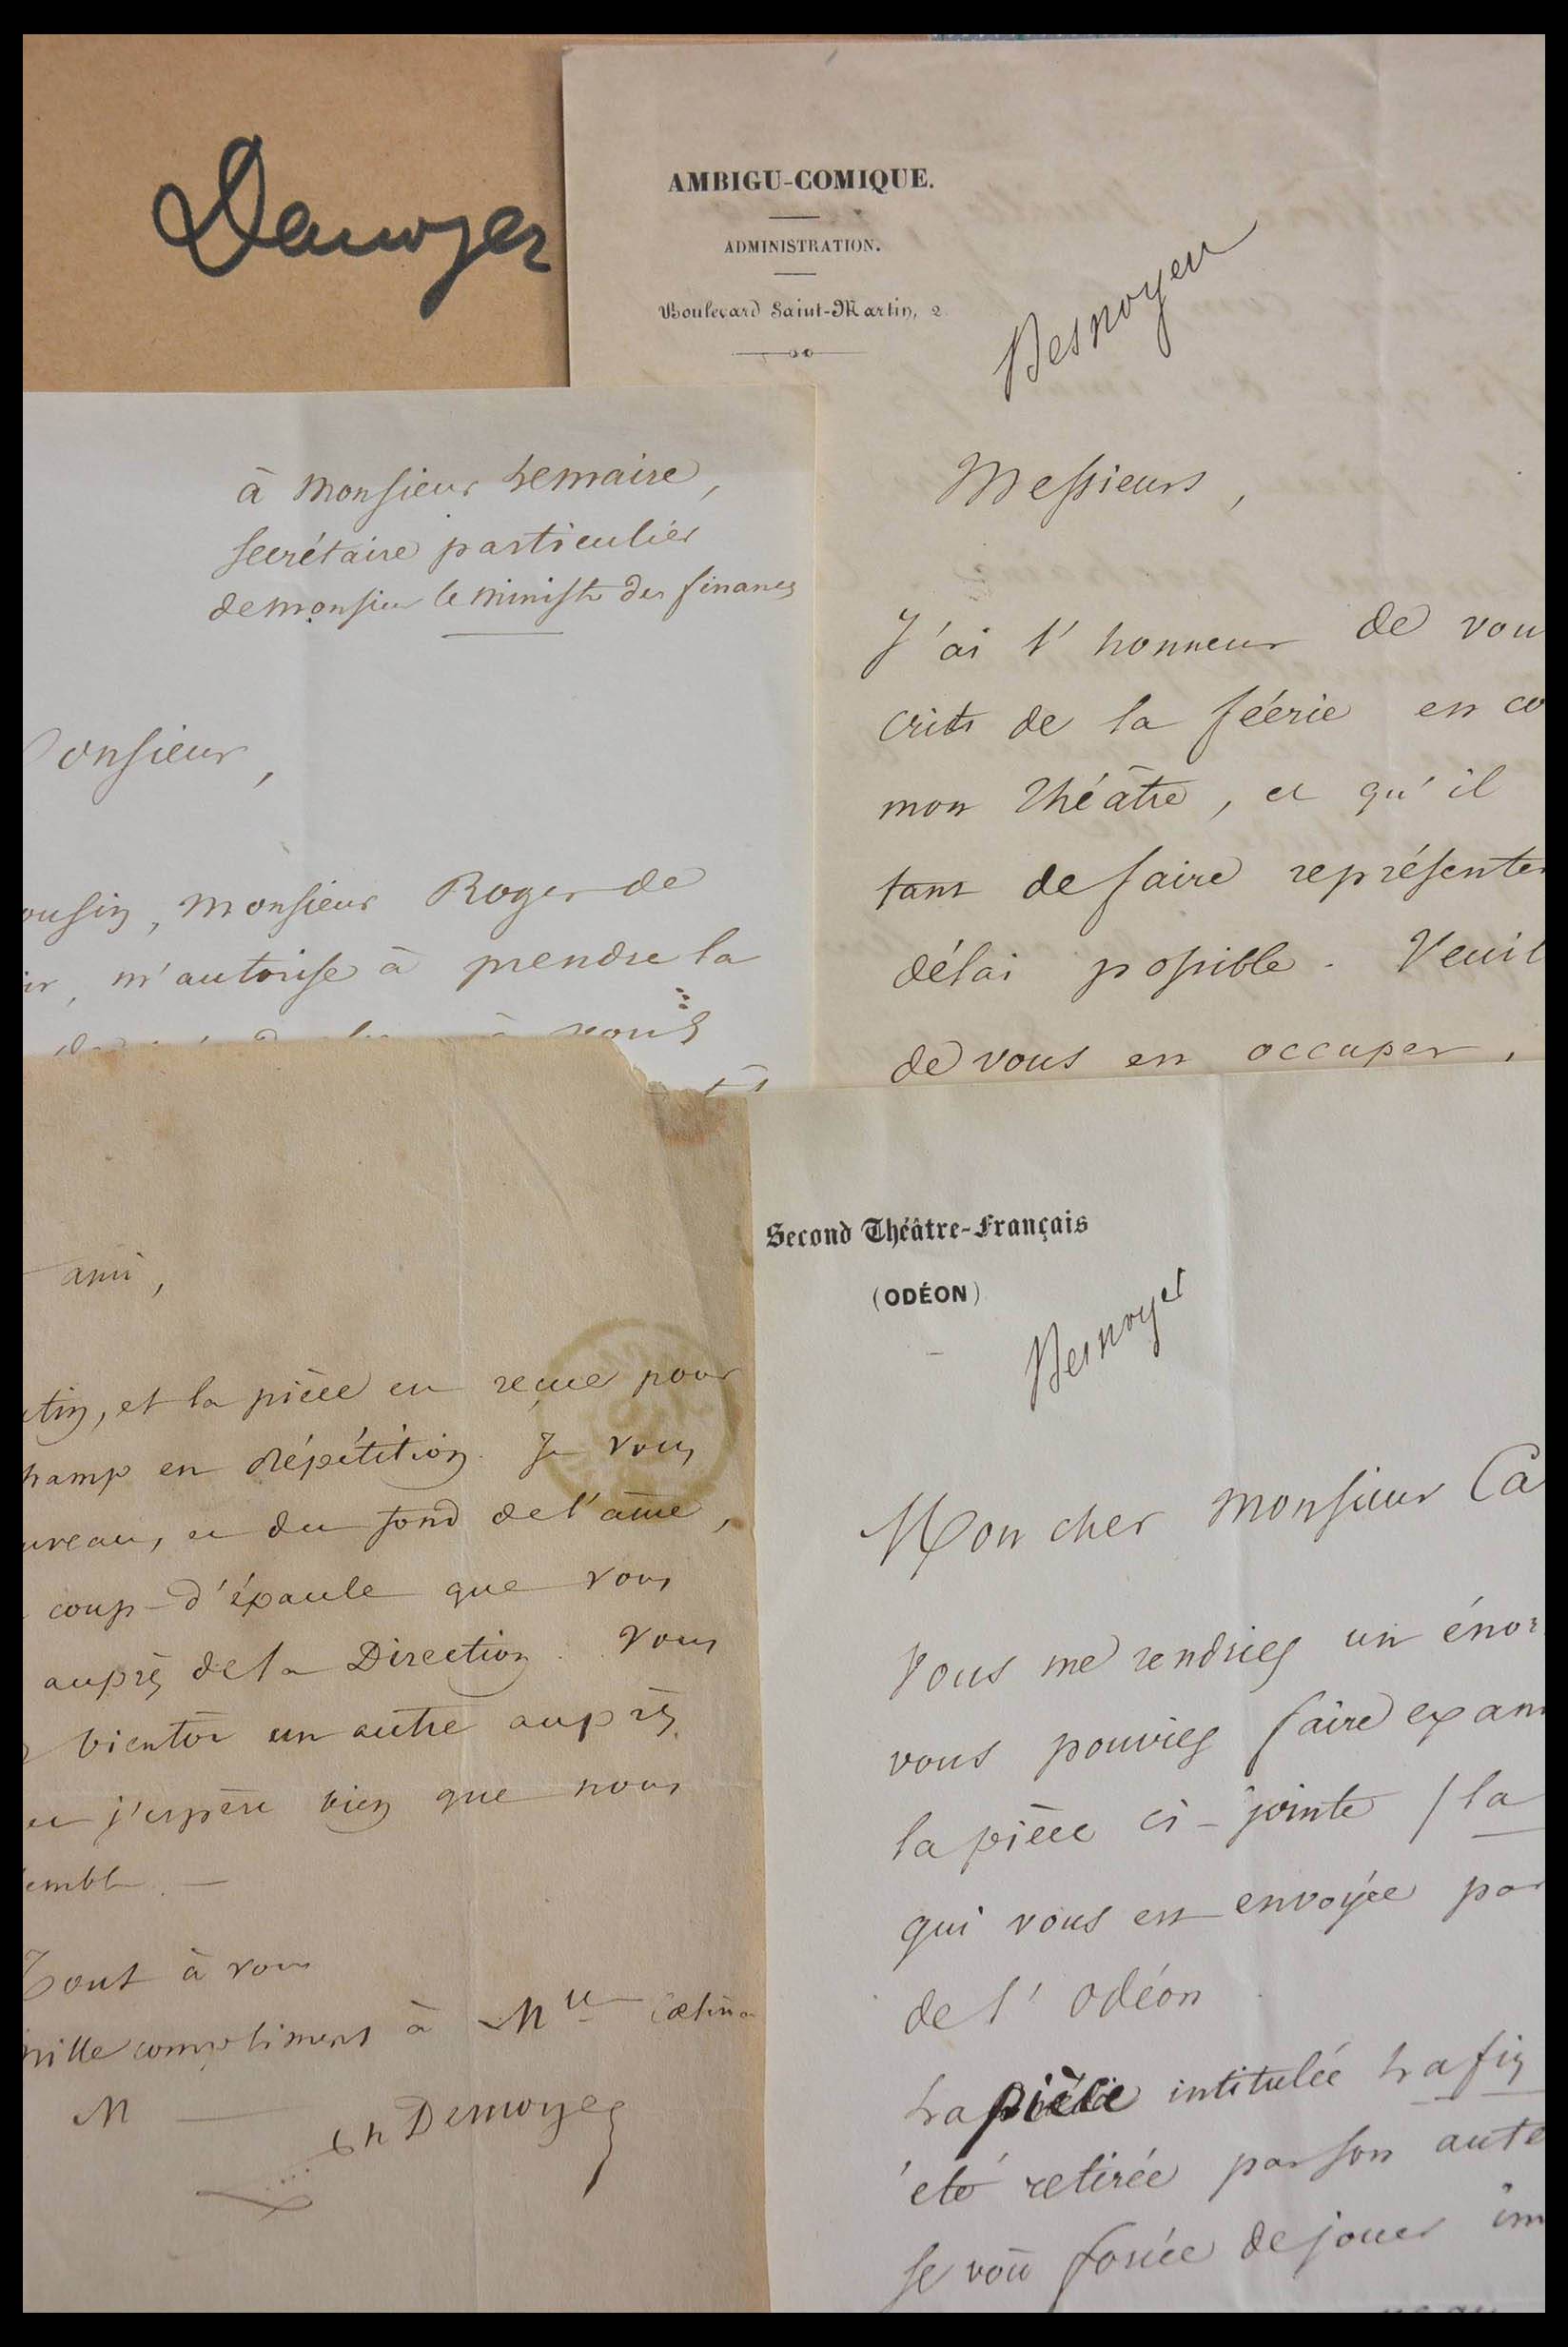 Desnoyer
AMBIGU-COMIQUE.
ADMINISTRATION.
Boulevard Saint-Martin, 2
Desnoyer
Messieurs,
J'ai l'honneur de vou
crits de la féérie en co
mon théâtre, et qu'il
tant de faire représenter
délai possible. Veuil
de vous en occuper,
à Monsieur Lemaire,
secrétaire particulier
de monsieur le ministre des finances
onsieur,
ousin, Monsieur Roger de
ir, m'autorise à prendre la
vous
ami,
tin, et la pièce est reçue pour
hamp en répétition. Je vous
uveau, et du fond de l'âme,
coup-d'épaule que vous
auprès de la Direction. Vous
bientôt un autre auprès
et j'espère bien que nous
embl
Tout à vous
mille compliments à Mlle
M
Ch Desnoyer
Second Théâtre-Français
(ODÉON)
Desnoyer
Mon cher Monsieur Ca
Vous me rendriez un énor
vous pouviez faire exam
la pièce ci-jointe / la
qui vous est envoyée par
de l'Odéon
La pièce intitulée La fin
été retirée par son aute
se voit forcée de jouer im